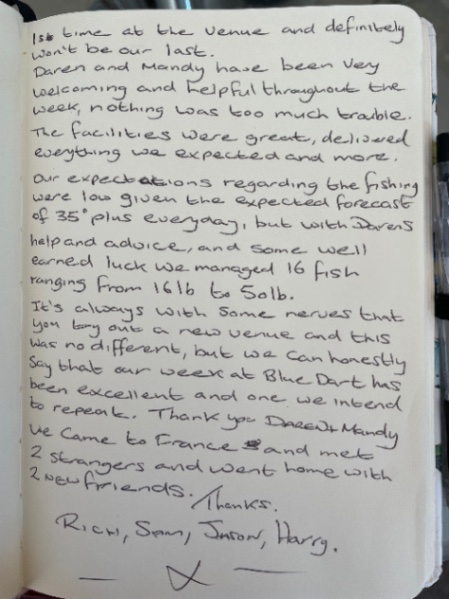 1st time at the venue and definitely
won't be our last.
Daren and Mandy have been very
welcoming and helpful throughout the
week, nothing was too much trouble.
The facilities were great, delivered
everything we expected and more.
Our expectations regarding the fishing
were low given the expected forecast
of 35° plus everyday, but with Darens
help and advice, and some well
earned luck we managed 16 fish
ranging from 16lb to 50lb.
It's always with some nerves that
you try out a new venue and this
was no different, but we can honestly
say that our week at Blue Dart has
been excellent and one we intend
to repeat. Thank you Daren + Mandy
We came to France and met
2 strangers and went home with
2 new friends.
Thanks.
Rich, Sam, Jason, Harry.
X